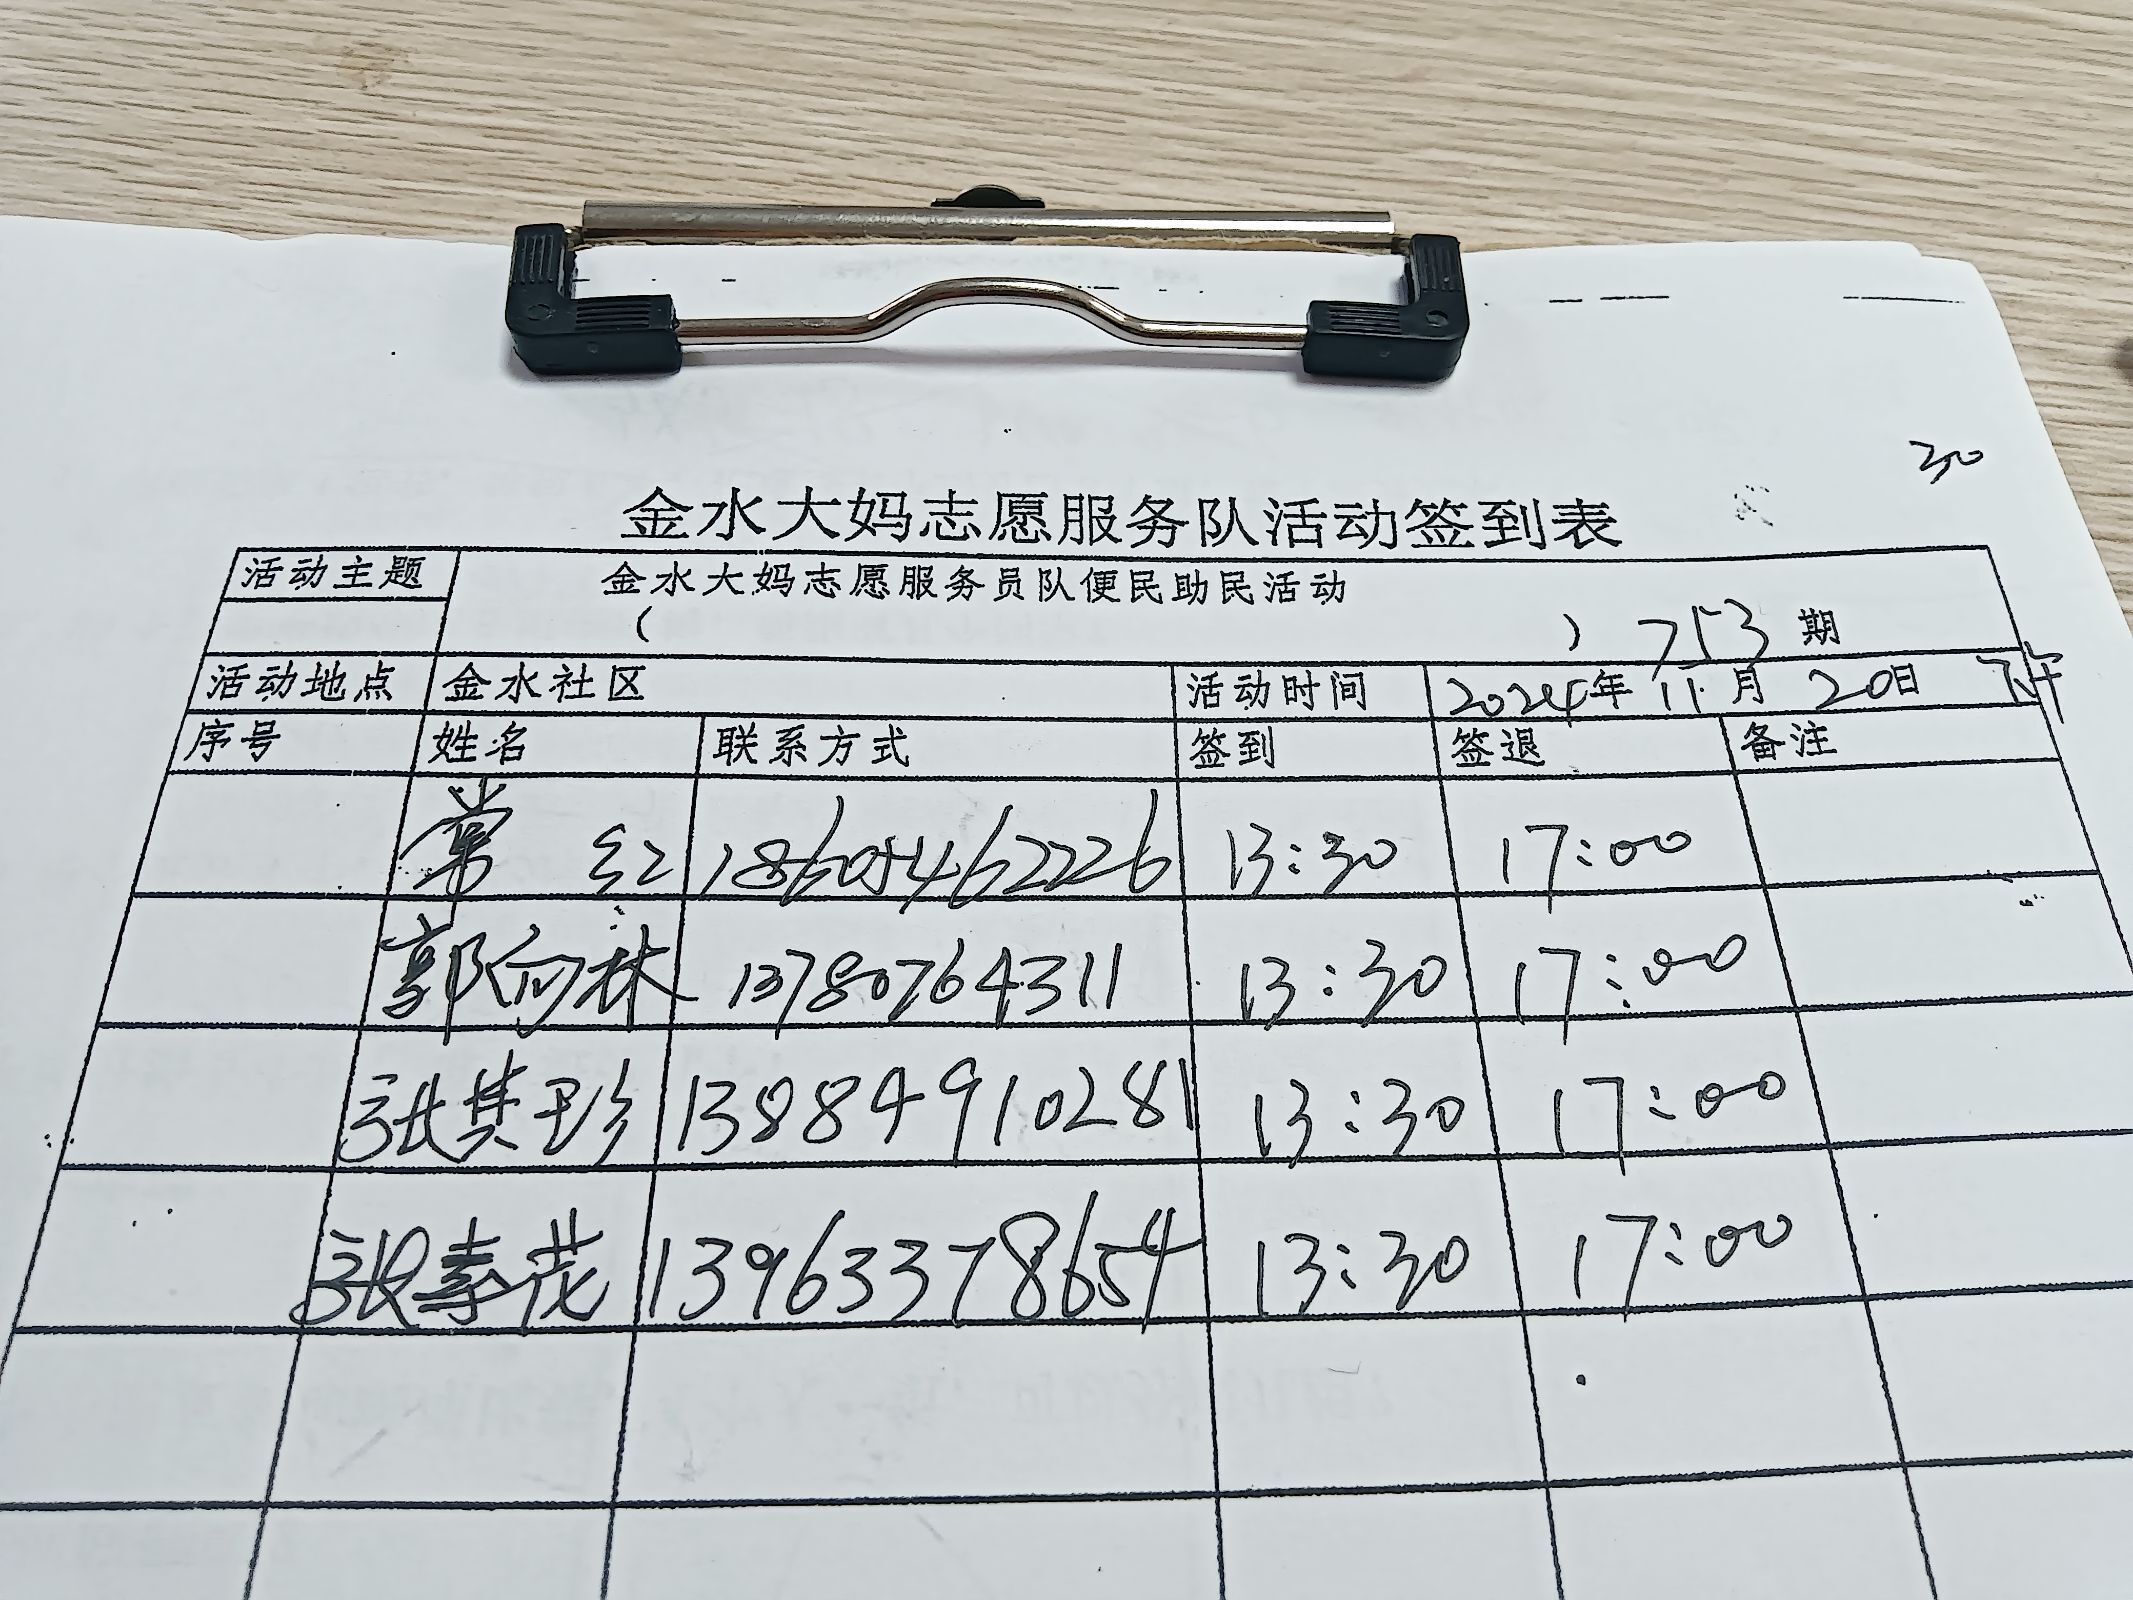 30
金水大妈志愿服务队活动签到表
活动主题 金水大妈志愿服务员队便民助民活动
( ) 753 期
活动地点 金水社区 活动时间 2024年 11月 20日 下午
序号 姓名 联系方式 签到 签退 备注
常红 18605462226 13:30 17:00
郭向林 13780764311 13:30 17:00
张其珍 13884910281 13:30 17:00
张素花 13963378654 13:30 17:00